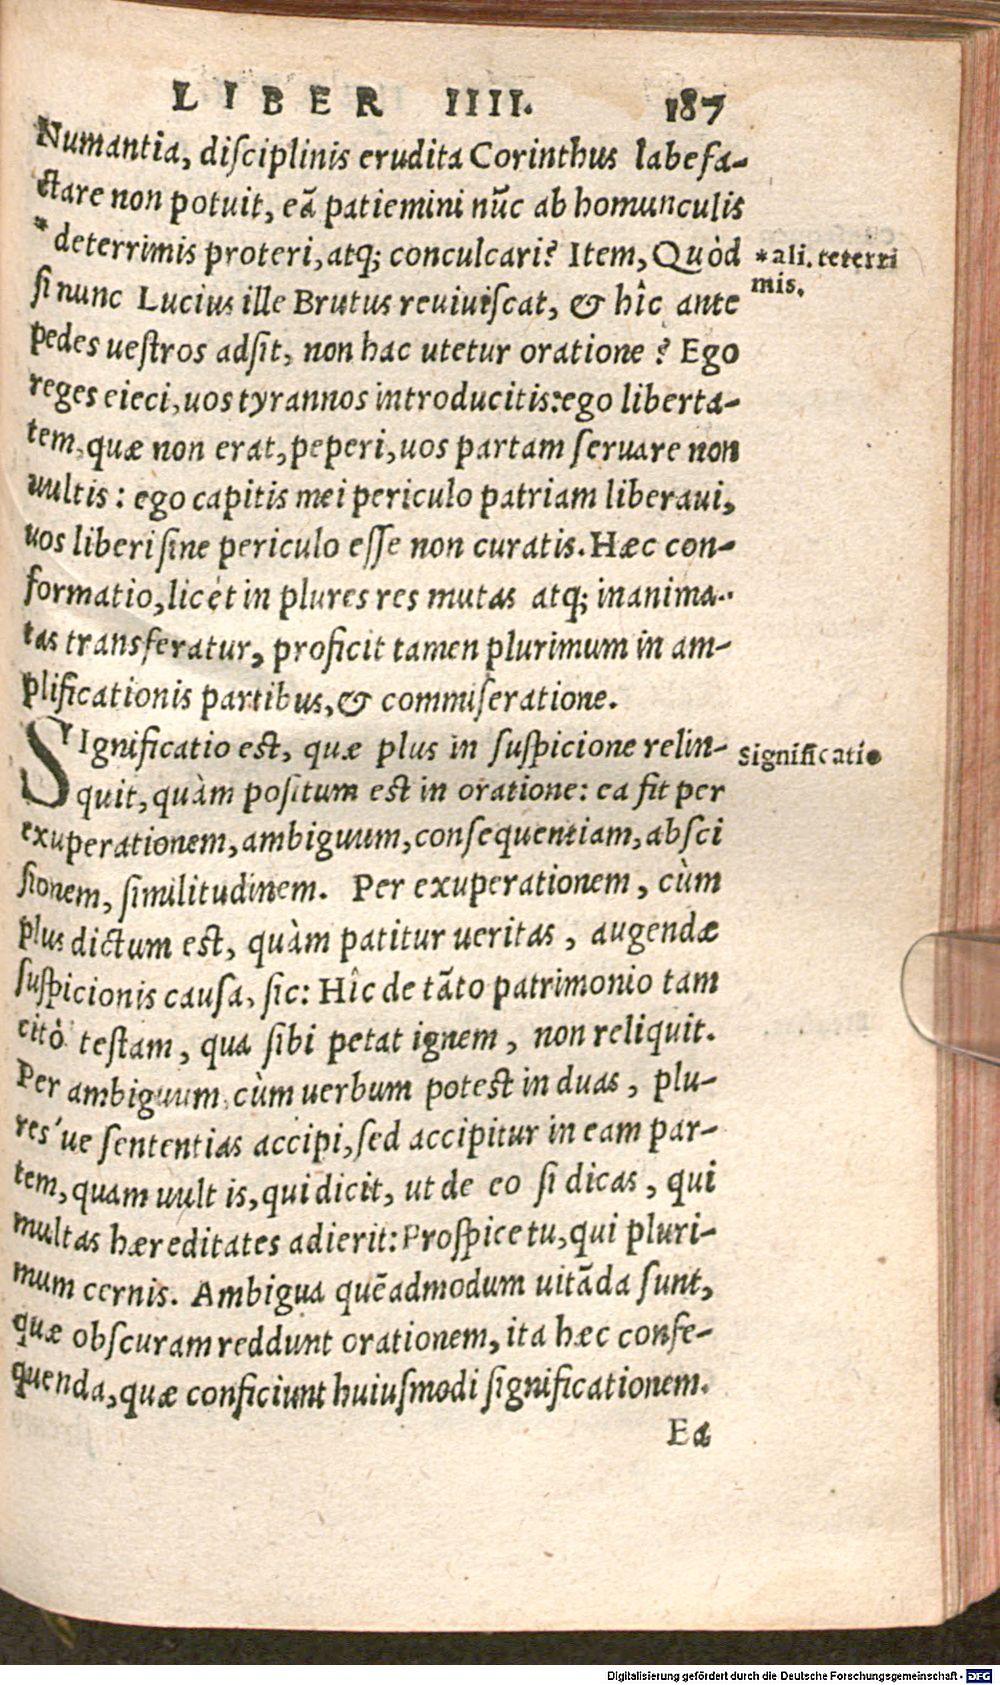 LIBER IIII. 187
Numantia, disciplinis erudita Corinthus labefa-
ctare non potuit, eã patiemini nũc ab homunculis
*deterrimis proteri, atq; conculcari? Item, Quòd
*ali. teterri
mis.
si nunc Lucius ille Brutus reuiuiscat, & hîc ante
pedes uestros adsit, non hac utetur oratione? Ego
reges eieci, uos tyrannos introducitis: ego liberta-
tem, quæ non erat, peperi, uos partam seruare non
uultis: ego capitis mei periculo patriam liberaui,
uos liberi sine periculo esse non curatis. Hæc con-
formatio, licet in plures res mutas atq; inanima-
tas transferatur, proficit tamen plurimum in am-
plificationis partibus, & commiseratione.
SIgnificatio est, quæ plus in suspicione relin-
Significatio
quit, quàm positum est in oratione: ea fit per
exuperationem, ambiguum, consequentiam, absci
sionem, similitudinem. Per exuperationem, cùm
plus dictum est, quàm patitur ueritas, augendæ
suspicionis causa, sic: Hîc de tãto patrimonio tam
citò testam, qua sibi petat ignem, non reliquit.
Per ambiguum, cùm uerbum potest in duas, plu-
res'ue sententias accipi, sed accipitur in eam par-
tem, quam uult is, qui dicit, ut de eo si dicas, qui
multas hæreditates adierit: Prospice tu, qui pluri-
mum cernis. Ambigua quẽadmodum uitãda sunt,
quæ obscuram reddunt orationem, ita hæc conse-
quenda, quæ conficiunt huiusmodi significationem.
Ea
Digitalisierung gefördert durch die Deutsche Forschungsgemeinschaft - DFG